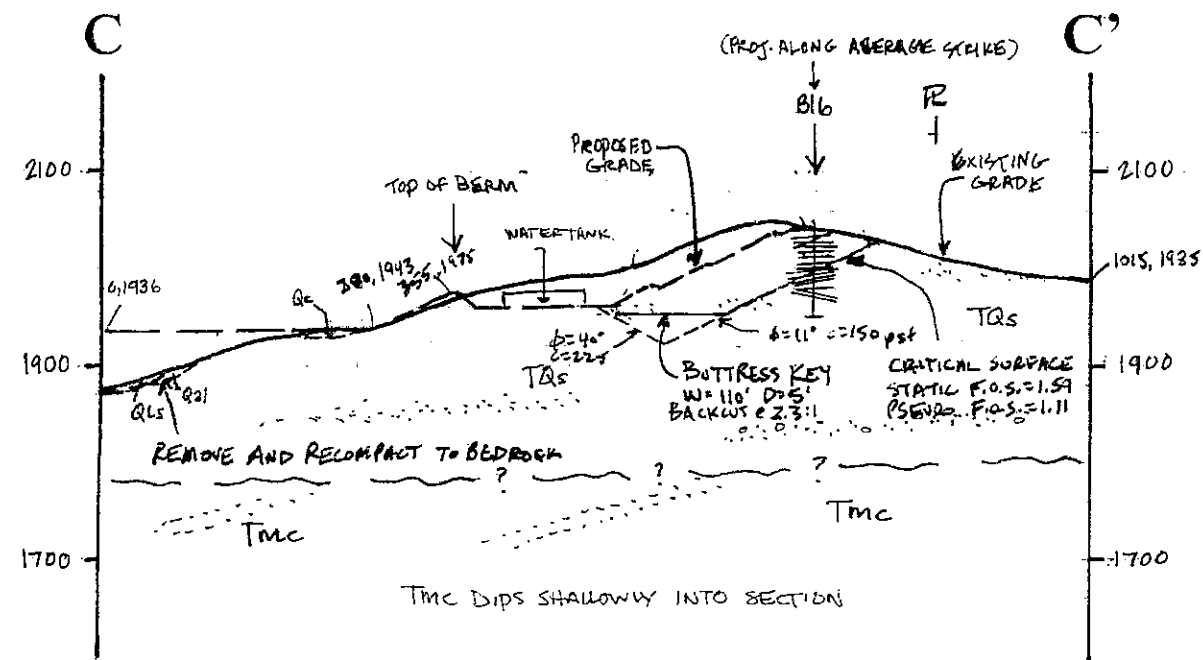 C
C'
(PROJ. ALONG ABERAGE STRIKE)
B16
PL
2100
2100
PROPOSED
GRADE
EXISTING
GRADE
TOP OF BERM
WATERTANK
380, 1943
355, 1975
0, 1936
Qc
1015, 1985
TQs
1900
1900
Qls
Qal
φ=40°
c=225
TQs
φ=11° c=150 psf
BUTTRESS KEY
W=110' D=5'
BACKCUT @ 2.3:1
CRITICAL SURFACE
STATIC F.O.S.=1.59
PSEUDO. F.O.S.=1.11
REMOVE AND RECOMPACT TO BEDROCK
? ? ?
Tmc
Tmc
1700
1700
Tmc DIPS SHALLOWLY INTO SECTION